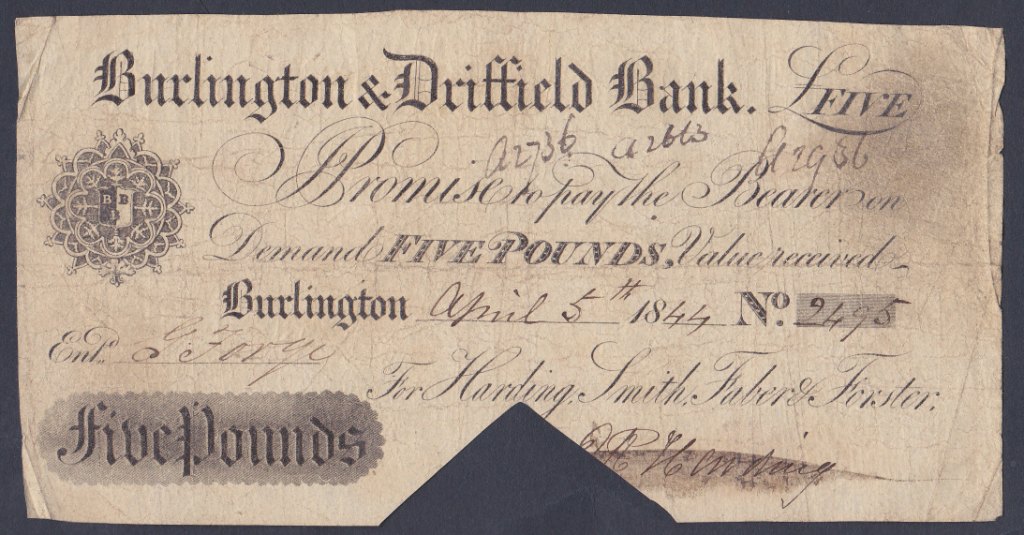 Burlington & Driffield Bank. £FIVE
a2736 a2663 a2936
B B B
I Promise to pay the Bearer on
Demand FIVE POUNDS, Value received
Burlington April 5th 1844 No. 2495
Entd. Forge
For Harding, Smith, Faber & Forster.
Five Pounds
Harding